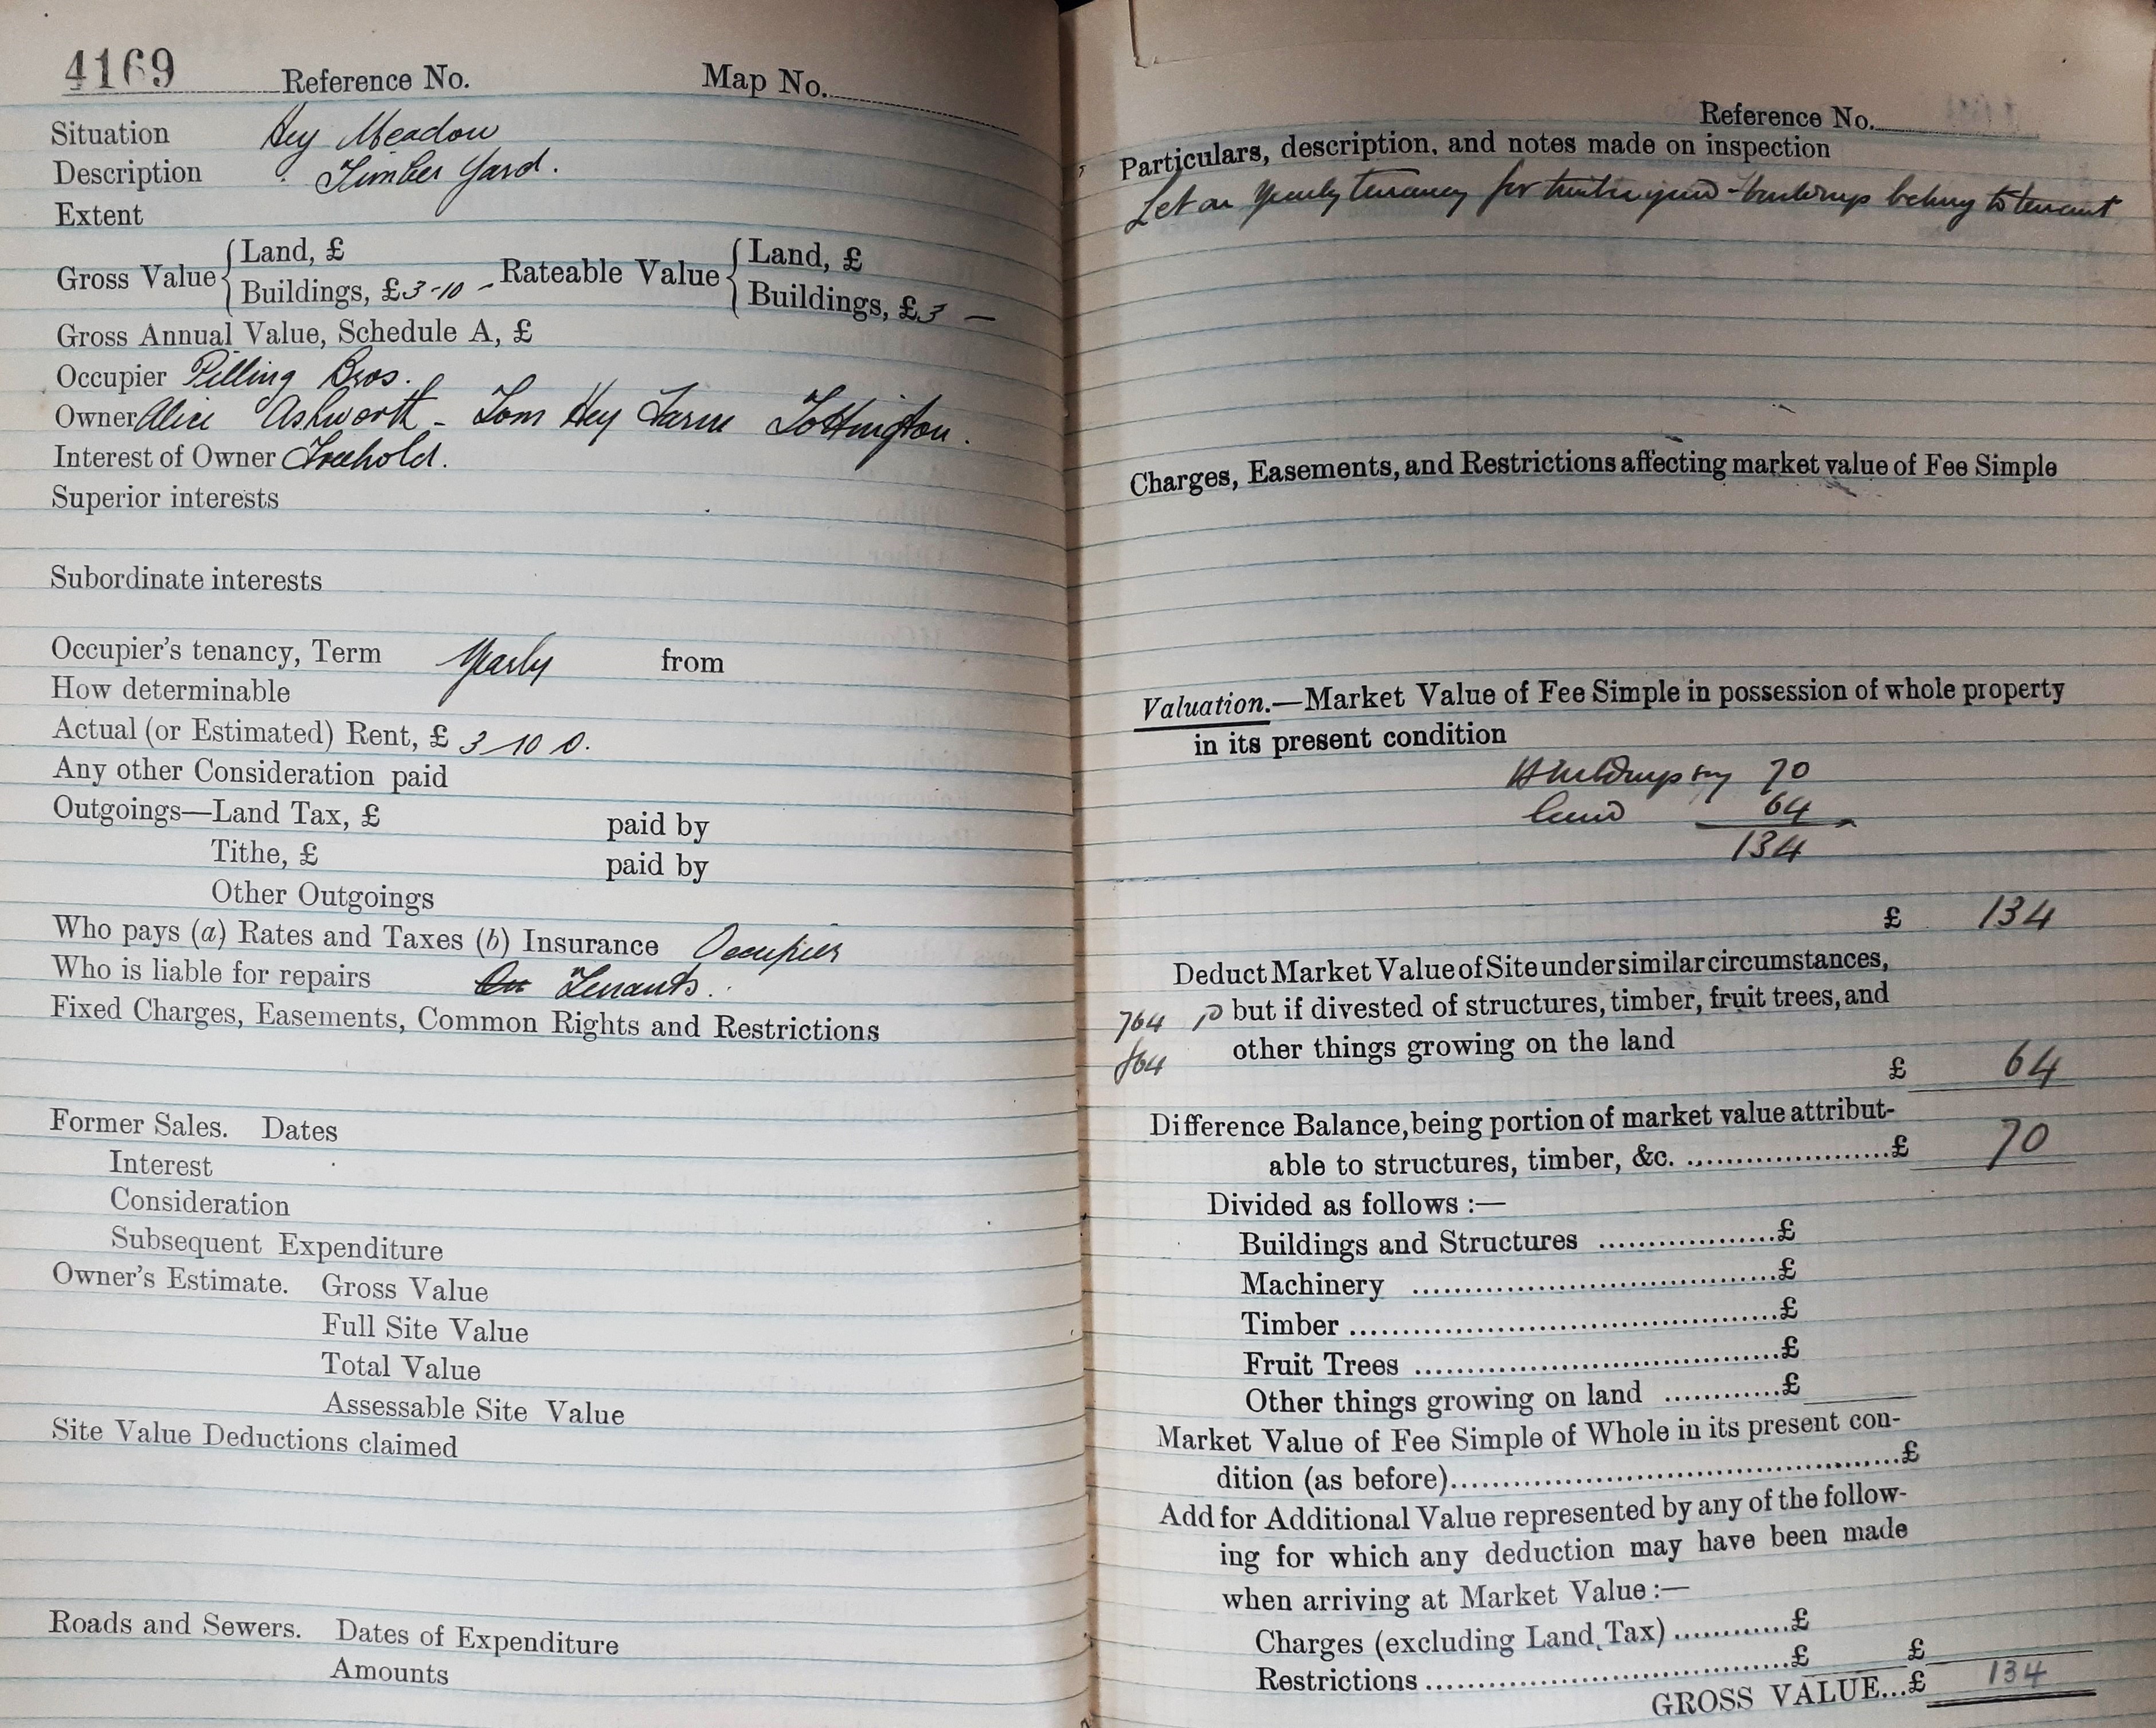 4169 Reference No. Map No.
Situation Hey Meadow
Description Timber Yard.
Extent
Gross Value { Land, £
Buildings, £3-10- Rateable Value { Land, £
Buildings, £3 —
Gross Annual Value, Schedule A, £
Occupier Pilling Bros.
Owner Alice Ashworth - Tom Hey Farm Tottington.
Interest of Owner Freehold.
Superior interests
Subordinate interests
Occupier's tenancy, Term Yearly from
How determinable
Actual (or Estimated) Rent, £ 3 10 0.
Any other Consideration paid
Outgoings—Land Tax, £ paid by
Tithe, £ paid by
Other Outgoings
Who pays (a) Rates and Taxes (b) Insurance Occupiers
Who is liable for repairs Tenants.
Fixed Charges, Easements, Common Rights and Restrictions
Former Sales. Dates
Interest
Consideration
Subsequent Expenditure
Owner's Estimate. Gross Value
Full Site Value
Total Value
Assessable Site Value
Site Value Deductions claimed
Roads and Sewers. Dates of Expenditure
Amounts
Reference No.
Particulars, description, and notes made on inspection
Let on yearly tenancy for timber yard - buildings belong to tenant
Charges, Easements, and Restrictions affecting market value of Fee Simple
Valuation.—Market Value of Fee Simple in possession of whole property
in its present condition
Buildings say 70
land 64
134
£ 134
Deduct Market Value of Site under similar circumstances,
764 but if divested of structures, timber, fruit trees, and
other things growing on the land
864
£ 64
Difference Balance, being portion of market value attribut-
able to structures, timber, &c. ....................£ 70
Divided as follows :—
Buildings and Structures ..................£
Machinery ......................................£
Timber .............................................£
Fruit Trees ......................................£
Other things growing on land ............£
Market Value of Fee Simple of Whole in its present con-
dition (as before)................................................£
Add for Additional Value represented by any of the follow-
ing for which any deduction may have been made
when arriving at Market Value :—
Charges (excluding Land Tax) ............£
Restrictions ......................................£ £
GROSS VALUE...£ 134